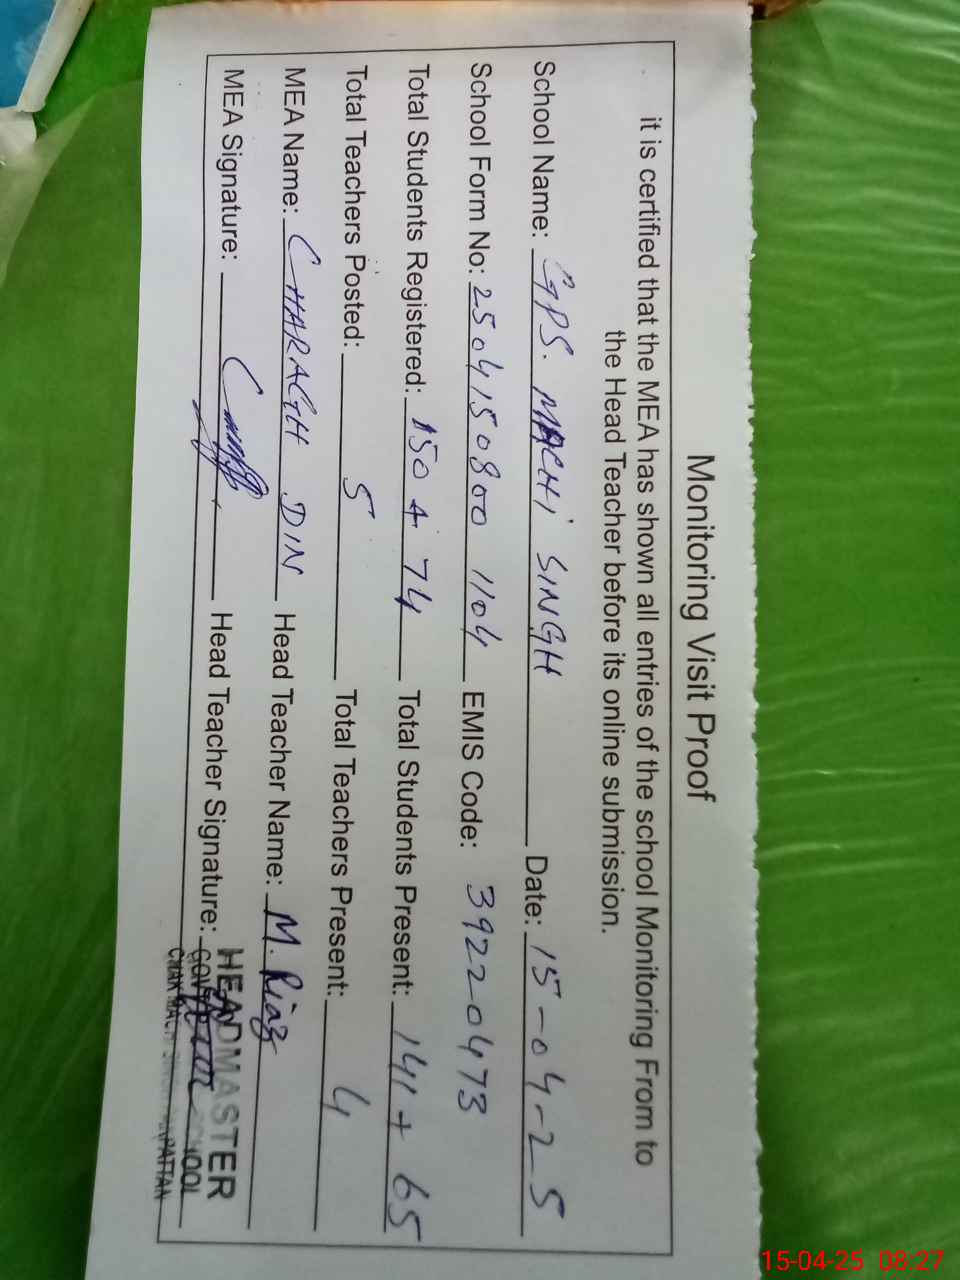 Monitoring Visit Proof
it is certified that the MEA has shown all entries of the school Monitoring From to
the Head Teacher before its online submission.
School Name: GPS. MACHI SINGH Date: 15-04-25
School Form No: 2504150800 1104 EMIS Code: 39220473
Total Students Registered: 150 + 74 Total Students Present: 141 + 65
Total Teachers Posted: 5 Total Teachers Present: 4
MEA Name: CHARAGH DIN Head Teacher Name: M. Riaz
MEA Signature: Head Teacher Signature:
HEADMASTER
SCHOOL
CHAK MACHI SINGH PAKPATTAN
15-04-25 08:27